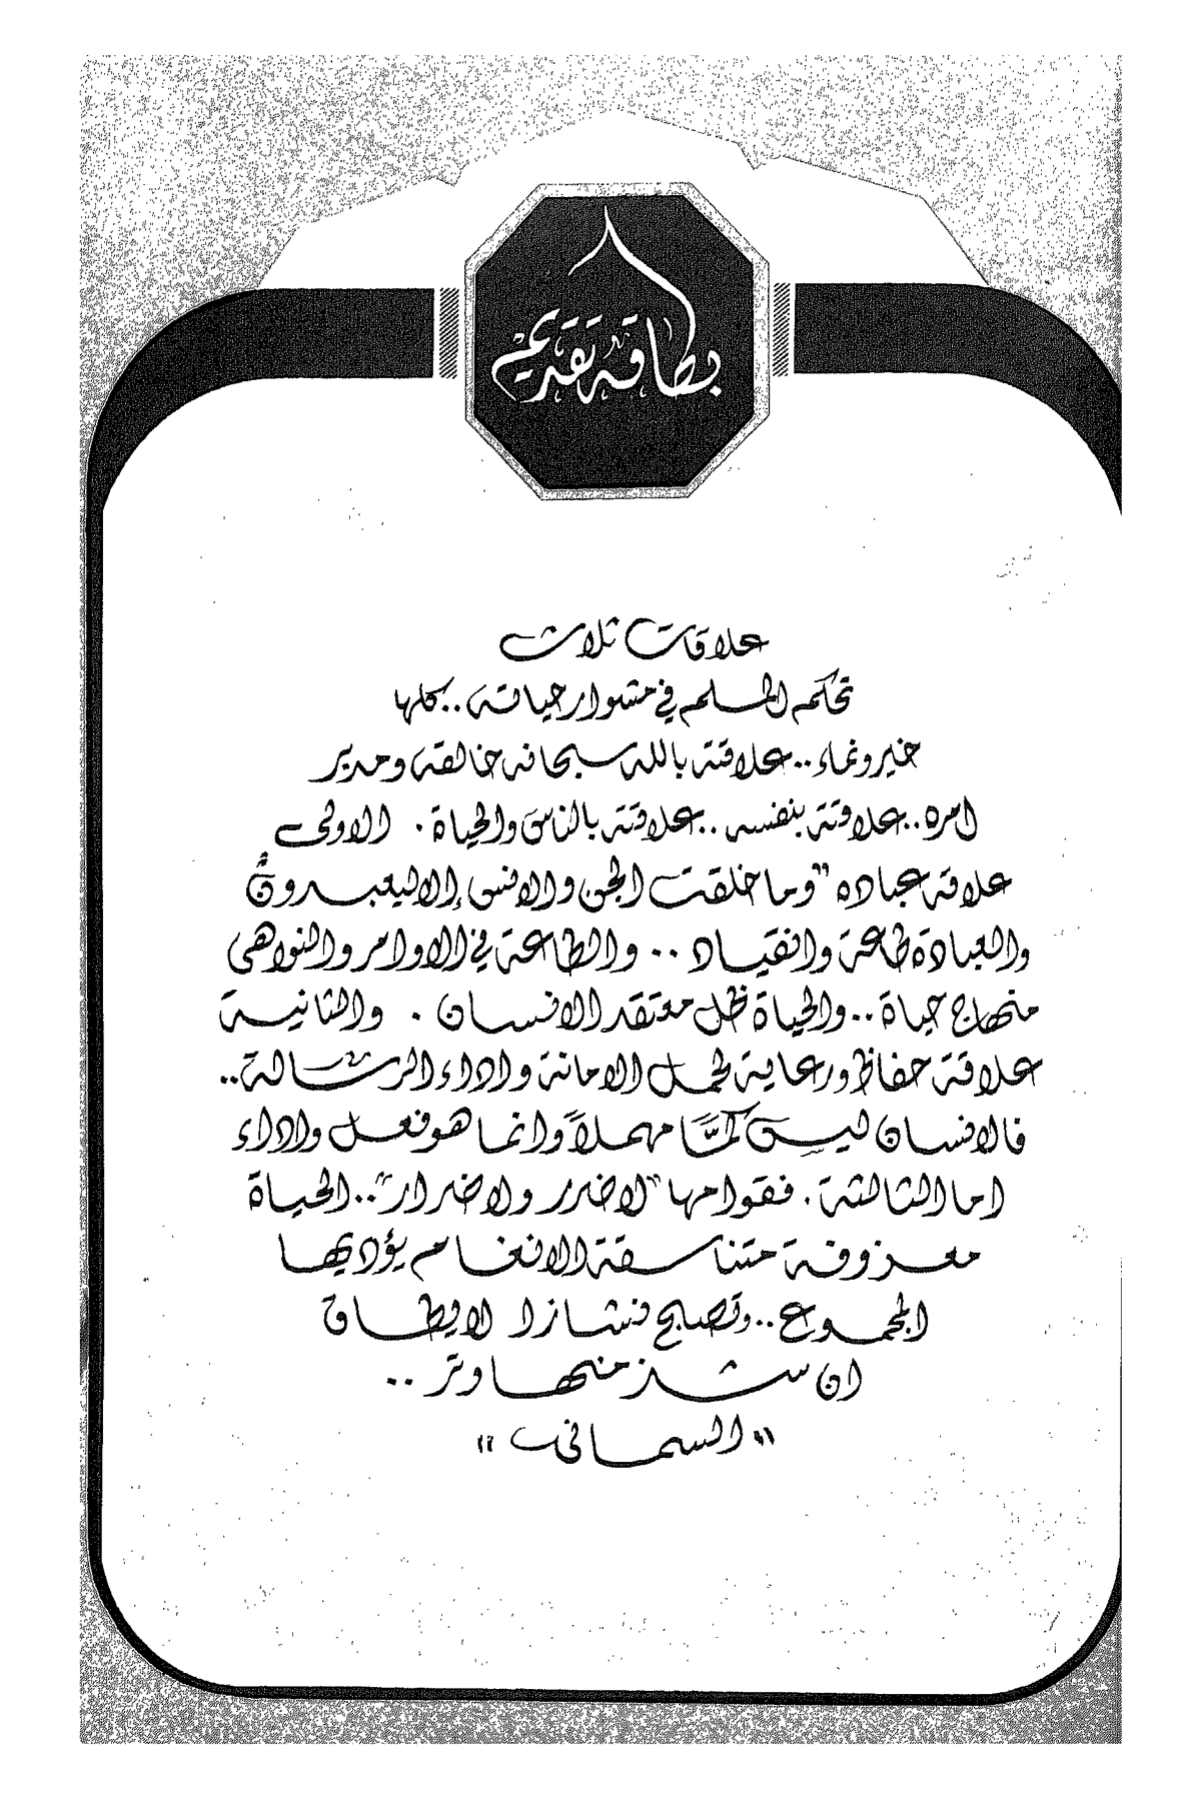 بطاقة تقديم
علاقات ثلاث
تحكم المسلم في مشوار حياته .. كلها
خير ونماء .. علاقته بالله سبحانه خالقه ومدبر
امره .. علاقته بنفسه .. علاقته بالناس والحياة . الاولى
علاقة عباده "وما خلقت الجن والانس إلا ليعبدون"
والعبادة طاعة وانقياد .. والطاعة في الاوامر والنواهي
منهاج حياة .. والحياة ظل معتقد الانسان . والثانية
علاقة حفاظ ورعاية لحمل الامانة واداء الرسالة ..
فالانسان ليس كمًّا مهملاً وانما هو فعل واداء
اما الثالثة . فقوامها "لا ضرر ولا ضرار" .. الحياة
معزوفة متناسقة الانغام يؤديها
المجموع .. وتصبح نشازا لا يطاق
ان شذ منها وتر ..
"السماني"